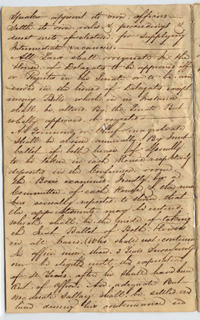 Speaker appoint its own officers
Settle its own rules of proceeding &
direct writs of election for supplying
intermediate vacancies.
All Laws shall originate in the
House of Delegates, to be approved
or rejected in the Senate or to be am
ended with consent of the House of Delegates except
money Bills which in no Instance
shall be altered by the Senate but
wholly approved or rejected.
A Governour or chief magistrate
Shall be chosen annually by joint
ballot of both houses
to be taken in each House respectively
deposited in the conference room
the Boxes examined jointly by a
committee of each House & the num
bers severally reported to them that
the appointments may be entered,
which shall be the mode of taking
the joint Ballot of Both Houses
in all Cases. Who shall not continue
in office more than 3 Years successively
nor be eligible until the expiration
of 4 Years after he shall have been
out of office. An adequate but
moderate Sallary shall be settled on
him during his continuance in